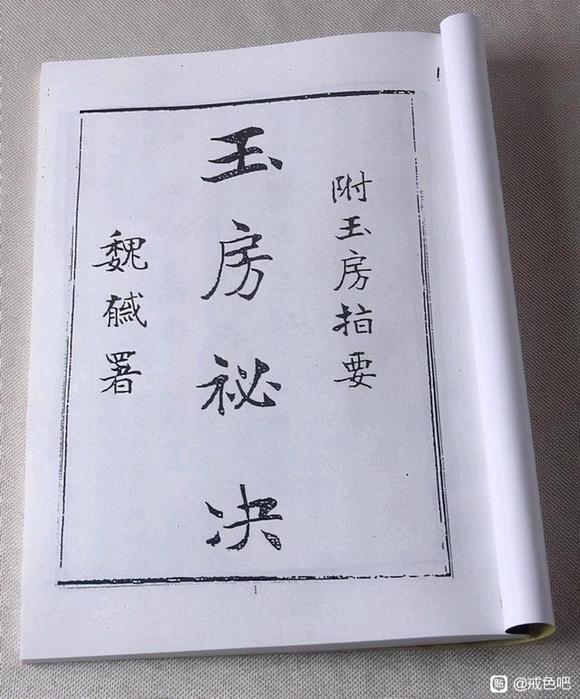 附玉房指要
玉房祕决
魏馘署
1
@戒色吧